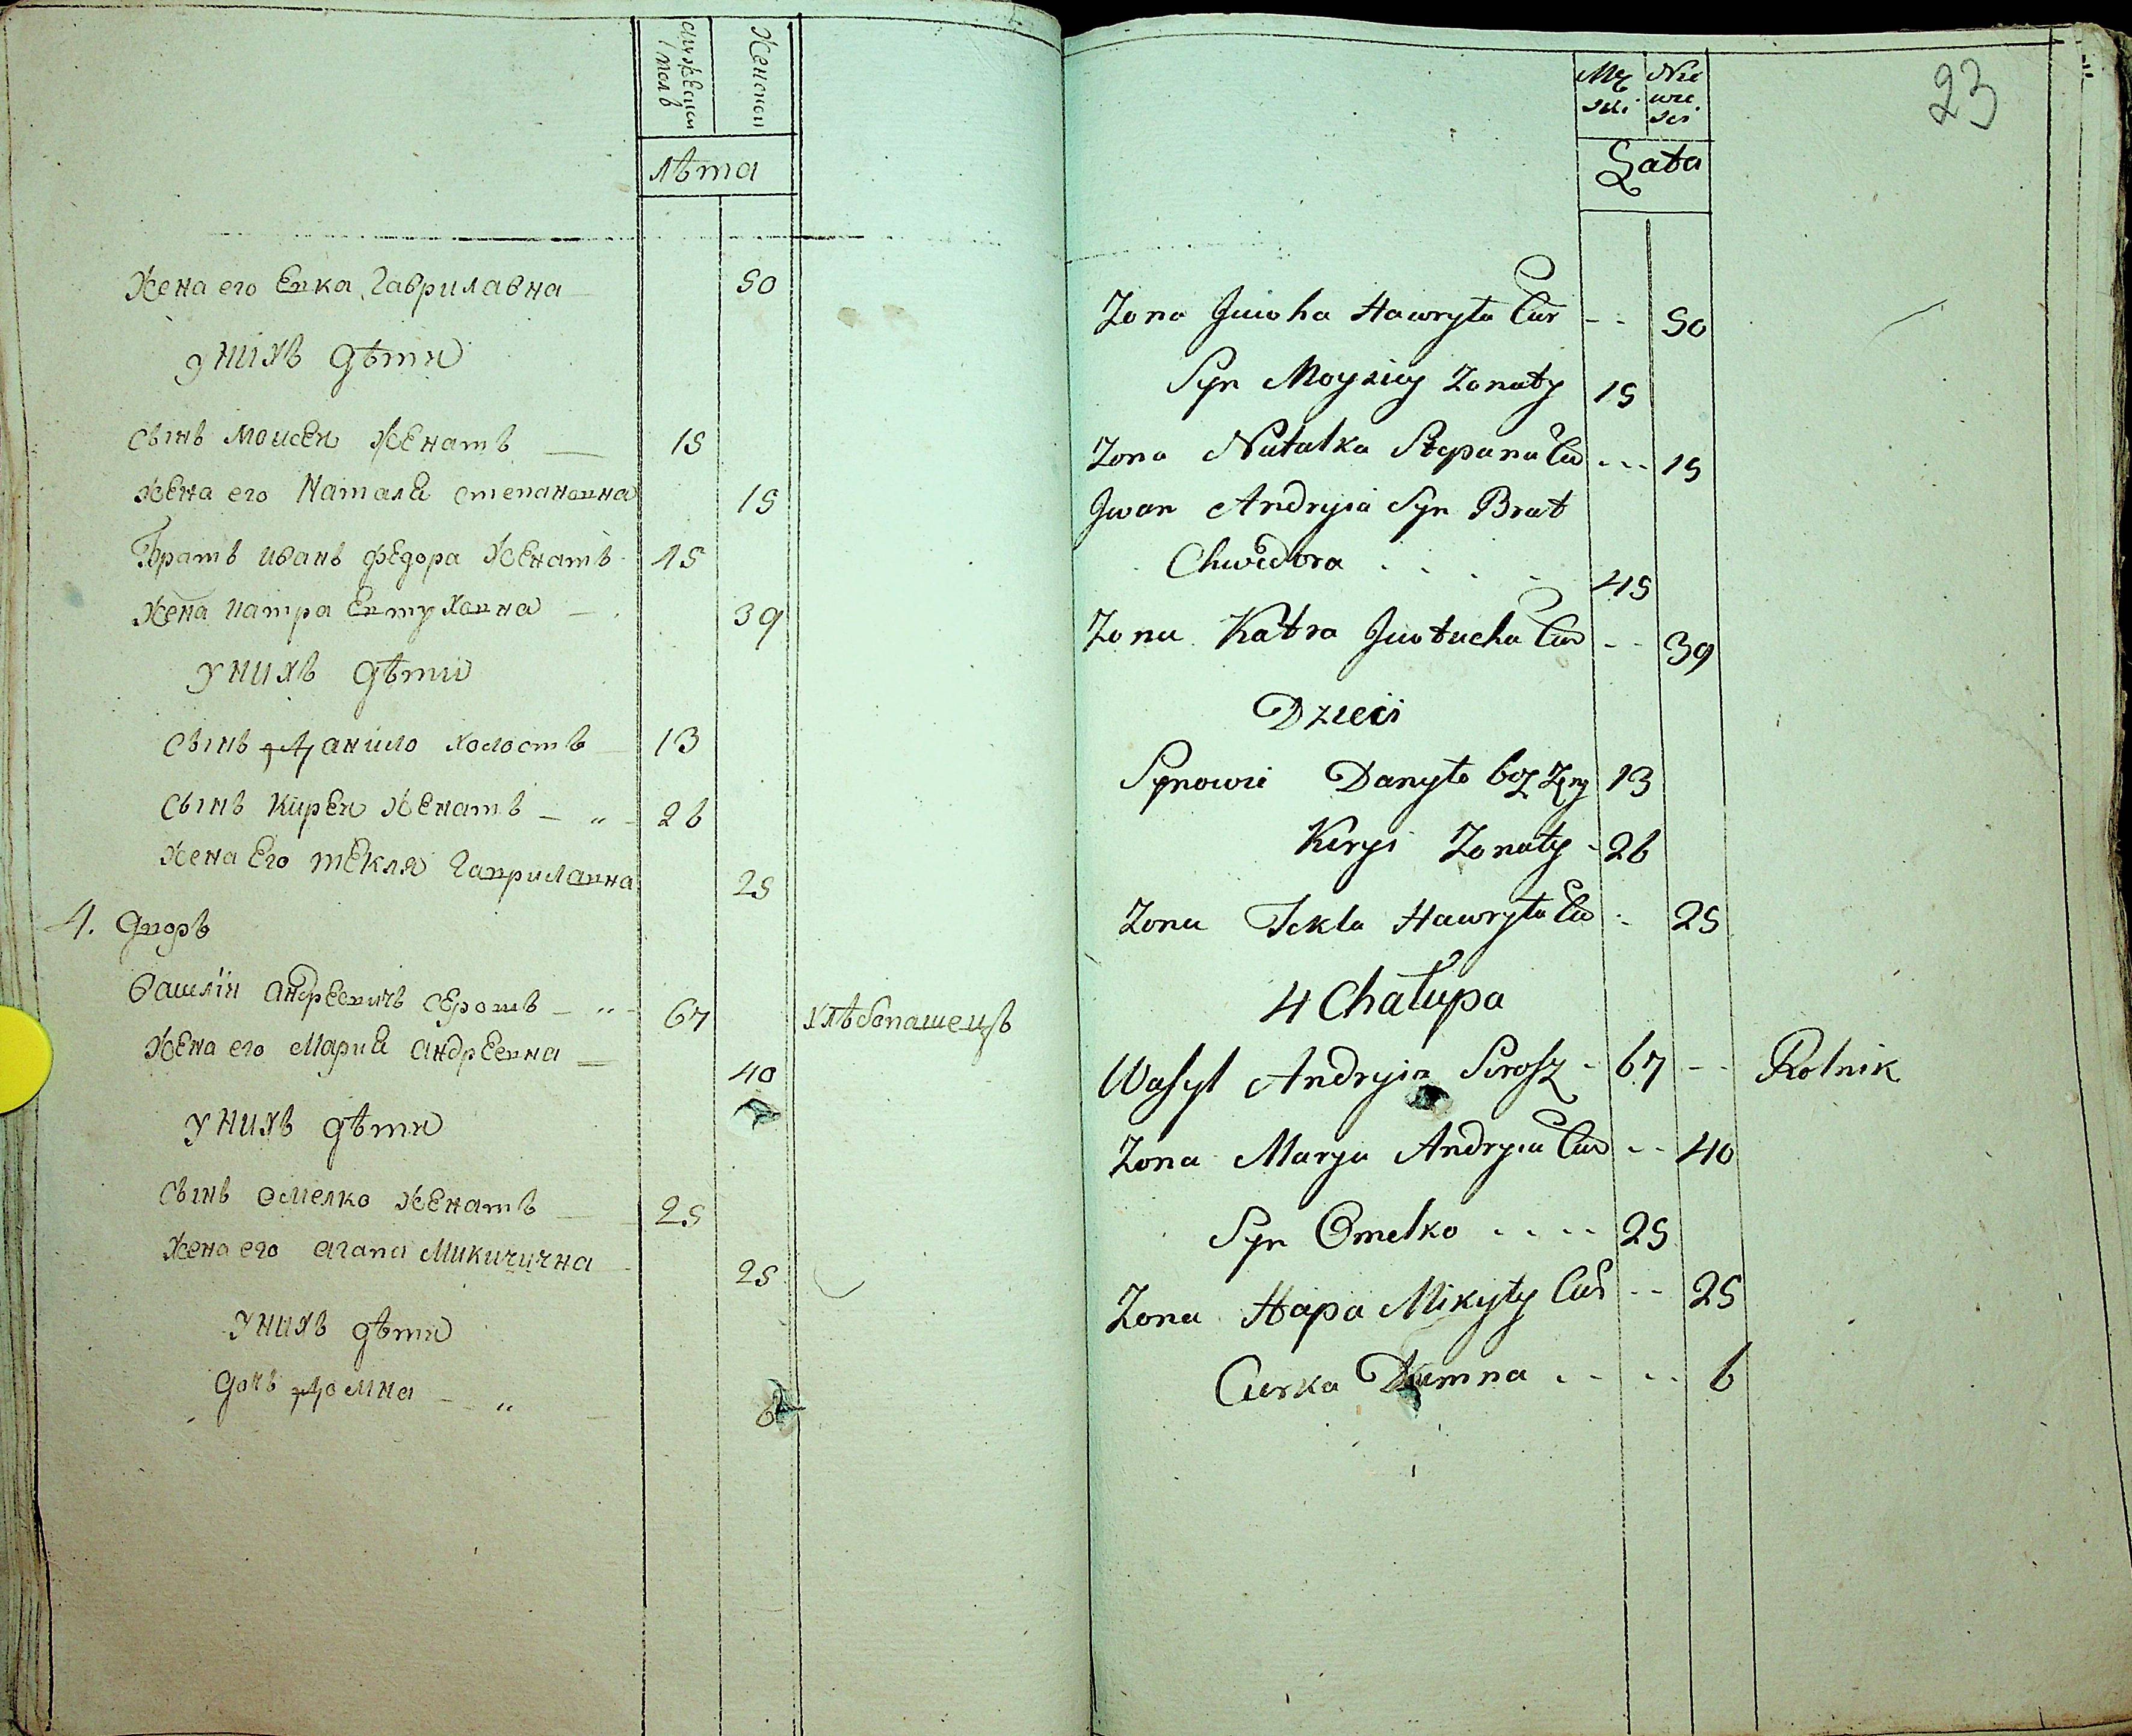 мужеском
полъ
Женском
лѣта
Жена его Евка Гаврилавна 50
унихъ дѣти
Сынъ Моисей Женатъ 15
жена его Наталя степановна 15
Братъ иванъ федора Женатъ 45
Жена катра Евтуховна 39
унихъ дѣти
Сынъ Данило холостъ 13
Сынъ Кирей Женатъ 26
Жена Его тЕкля Гавриловна 25
4. дворъ
Василiй андрЕевичъ сЕрошъ 67 хлѣбопашецъ
ЖЕна его Мария андрЕевна 40
унихъ дѣти
Сынъ Омелко ЖЕнатъ 25
Жена его агапа Микичична 25
унихъ дѣти
дочь Домна 6
23
Mę
ski
Nie
wie
sci
Lata
Zona Jiwha Hawryła Cur 50
Syn Moyziey Zonaty 15
Zona Natalka Stepana Cur 15
Jwan Andryia Syn Brat
Chwedora 45
Zona Katra Jwtucha Cur 39
Dzieci
Synowie Danyło bez Zeny 13
Keryi Zonaty 26
Zona Tekla Hawryła Cur 25
4 Chałupa
Wasyl Andryia Serosz 67 Rolnik
Zona Marya Andryia Cur 40
Syn Omelko 25
Zona Hapa Mikyty Cur 25
Curka Dumna 6